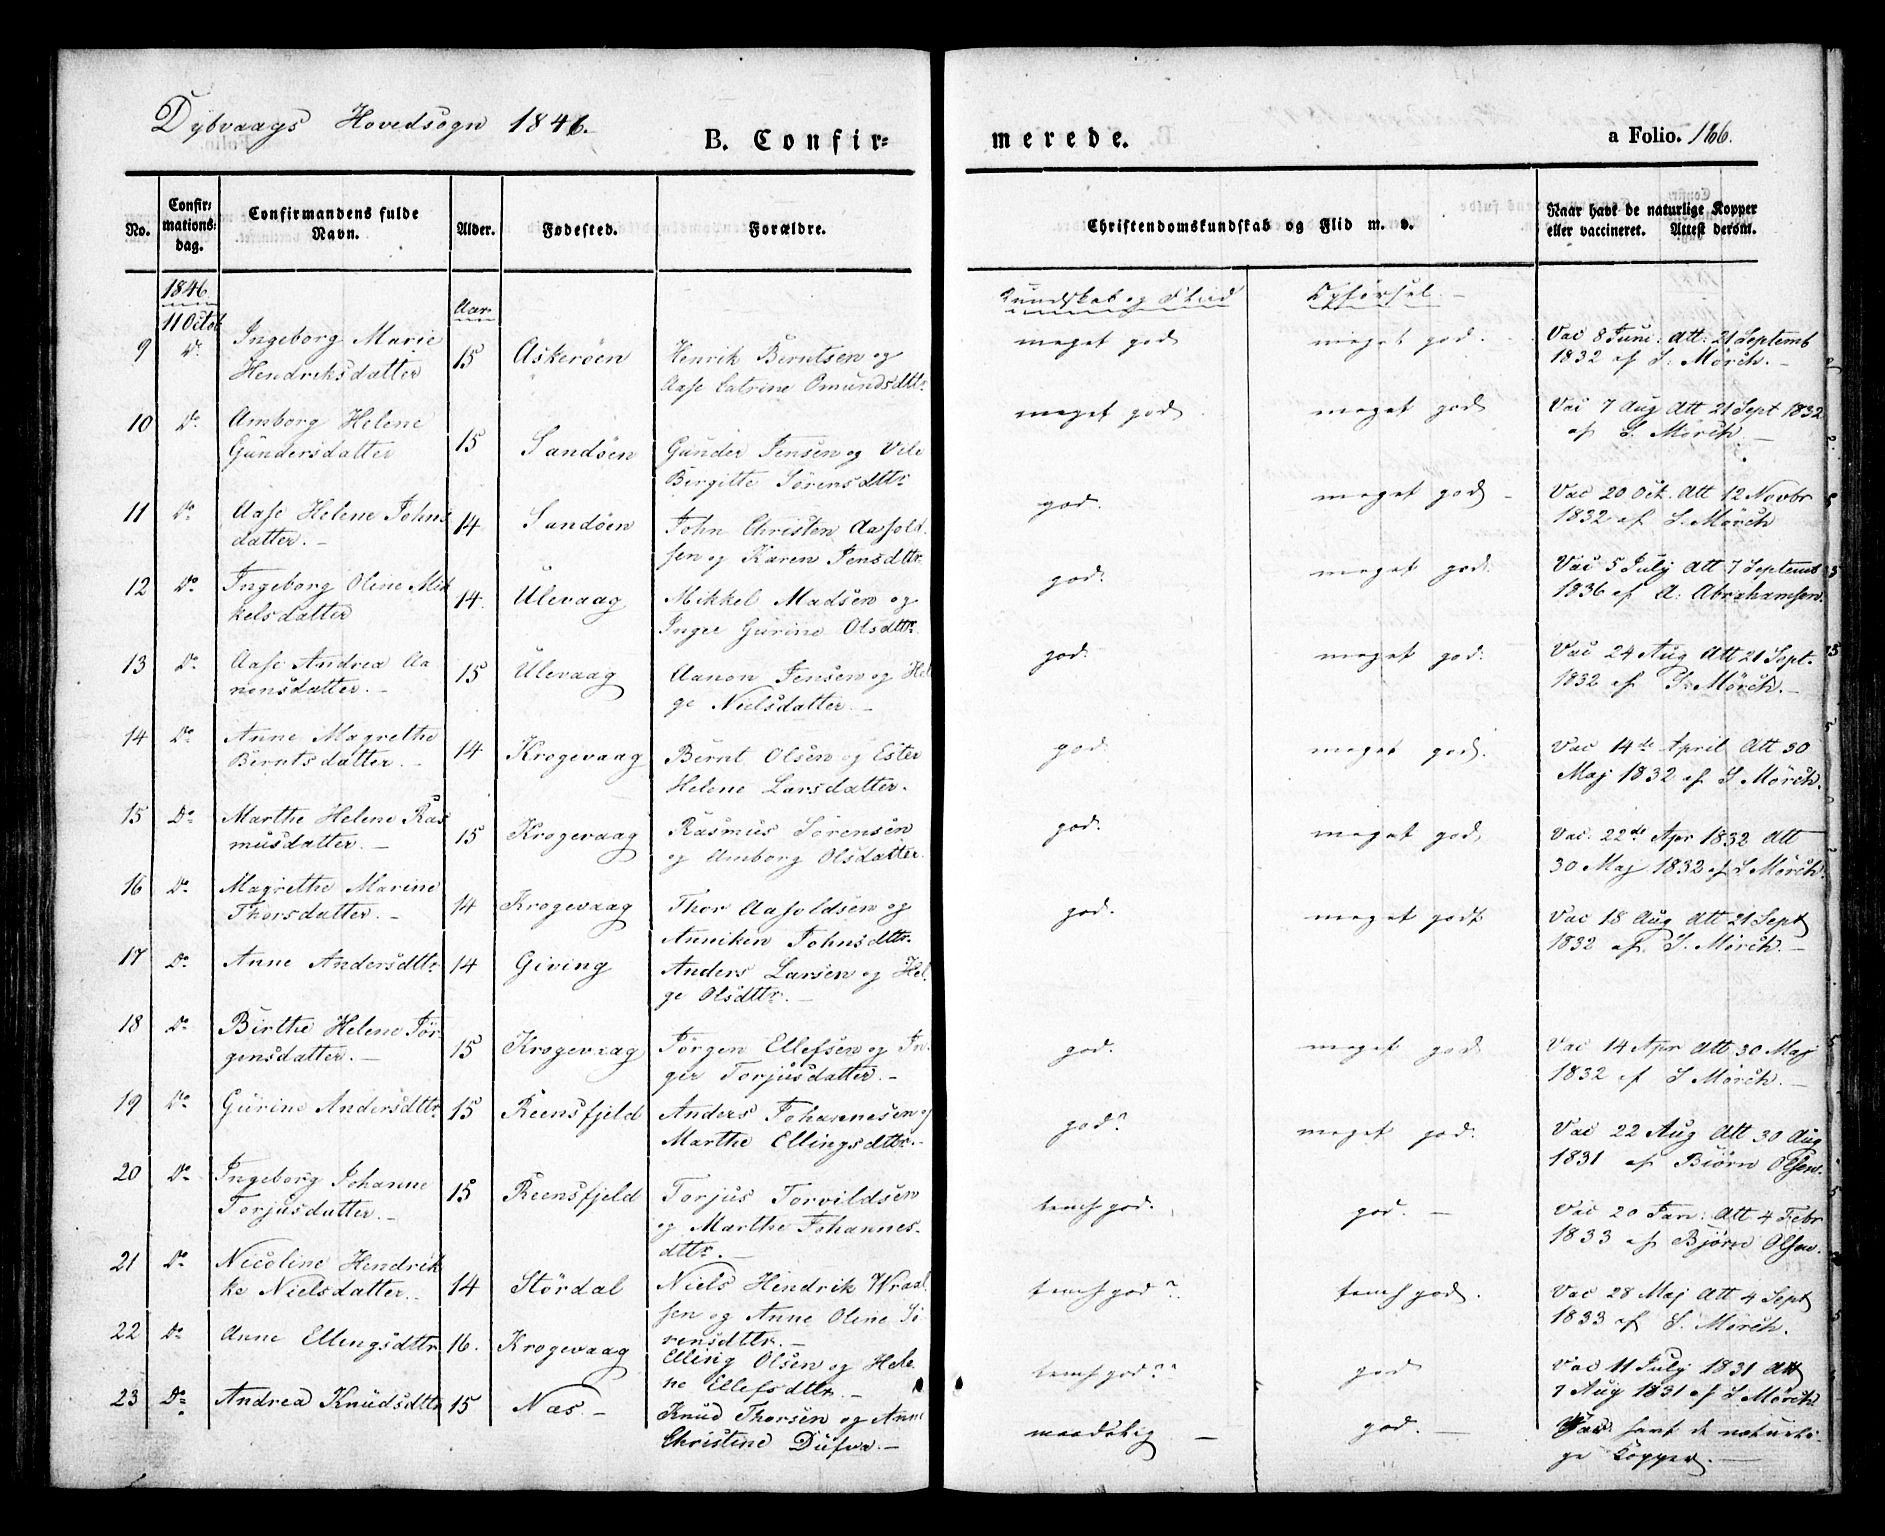 Dybvaags Hovedsogn 1846.
B. Confir= merede. a Folio. 166.
No. Confir= mations= dag. Confirmandens fulde Navn. Alder. Fødested. Forældre. Christendomskundskab og Flid m. v. Naar havt de naturlige Kopper eller vaccineret. Attest derom.
1846 Aar Kundskab og Flid Opførsel. -
11 Octob
9 Do Ingeborg Marie 15 Askerøen Henrik Berntsen og meget god meget god. Vac 8 Juni. Att. 21 Septemb
Hendriksdatter Aase Catrine Omundsdttr 1832 af S. Mørch. -
10 Do Amborg Helene 15 Sandøen Gunder Jensen og Vile meget god. meget god Vac 7 Aug Att 21 Sept 1832
Gundersdatter Birgitte Sørensdttr af S. Mørch -
11 Do Aase Helene Johns 14 Sandøen John Christen Aasold god. meget god - Vac 20 Oct. Att 12 Novbr
datter. - sen og Karen Jensdttr 1832 af S. Mørch
12 Do Ingeborg Olene Mik 14. Ulevaag Mikkel Madsen og god. meget god. Vac 5 July Att 7 Septemb
kelsdatter Inger Gurine Olsdttr. 1836 af A. Abrahamsen.
13 Do Aase Andrea Aa 15 Ulevaag Aanon Jensen og Hel god. meget god. Vac 24 Aug Att 21 Sept.
nonsdatter. - ge Nielsdatter. - 1832 af S. Mørch. -
14 Do Anne Magrethe 14 Krogevaag Bernt Olsen og Ester god. meget god. Vac 14de April Att 30
Berntsdatter. - Helene Larsdatter. Maj 1832 af S Mørch.
15 Do Marthe Helene Ras 15 Krogevaag Rasmus Sørensen god. meget god. Vac. 22de Apr 1832 Att
musdatter. - og Amborg Olsdatter. 30 Maj 1832 af S Mørch.
16 Do Magrethe Marine 14 Krogevaag Thor Aasoldsen og god. meget godt Vac 18 Aug Att 21 Sept
Thorsdatter. - Anniken Johnsdttr. 1832 af S. Mørch. -
17 Do Anne Andersdttr 14 Giving Anders Larsen og Hel-
ge Olsdttr. -
18 Do Birthe Helene Jør- 15 Krogevaag Jørgen Ellefsen og In- god. meget god Vac 14 Apr Att 30 Maj
gensdatter. - ger Torjusdatter. - 1832 af S Mørch. -
19 Do Gurine Andersdttr 15 Reensfjeld Anders Johannesen og god? meget god. Vac 22 Aug Att 30 Aug
Marthe Ellingsdttr. - 1831 af Biørn Olsen.
20 Do Ingeborg Johanne 15 Reensfjeld Torjus Torvildsen temf god. god. - Vac 20 Jan. Att 4 Febr
Torjusdatter. - og Marthe Johannes- 1833 af Bjørn Olsen.
dttr. -
21 Do Nicoline Hendrik 14 Størdal Niels Hendrik Wraal temf god? temf god. Vac 28 Maj Att 4 Sept
ke Nielsdatter. sen og Anne Olene Si 1833 af S. Mørch.
rensdttr. -
22 Do Anne Ellingsdttr 16. Krogevaag Elling Olsen og Hele temf god?? god Vac 11 July 1831 Att
ne Ellefsdttr. - 7 Aug 1831 af S Mørch
23 Do Andrea Knudsdttr 15 Næs. - Knud Thorsen og Anne maadelig - god. - havt de naturli-
Christine Dufva. - ge Kopper. -